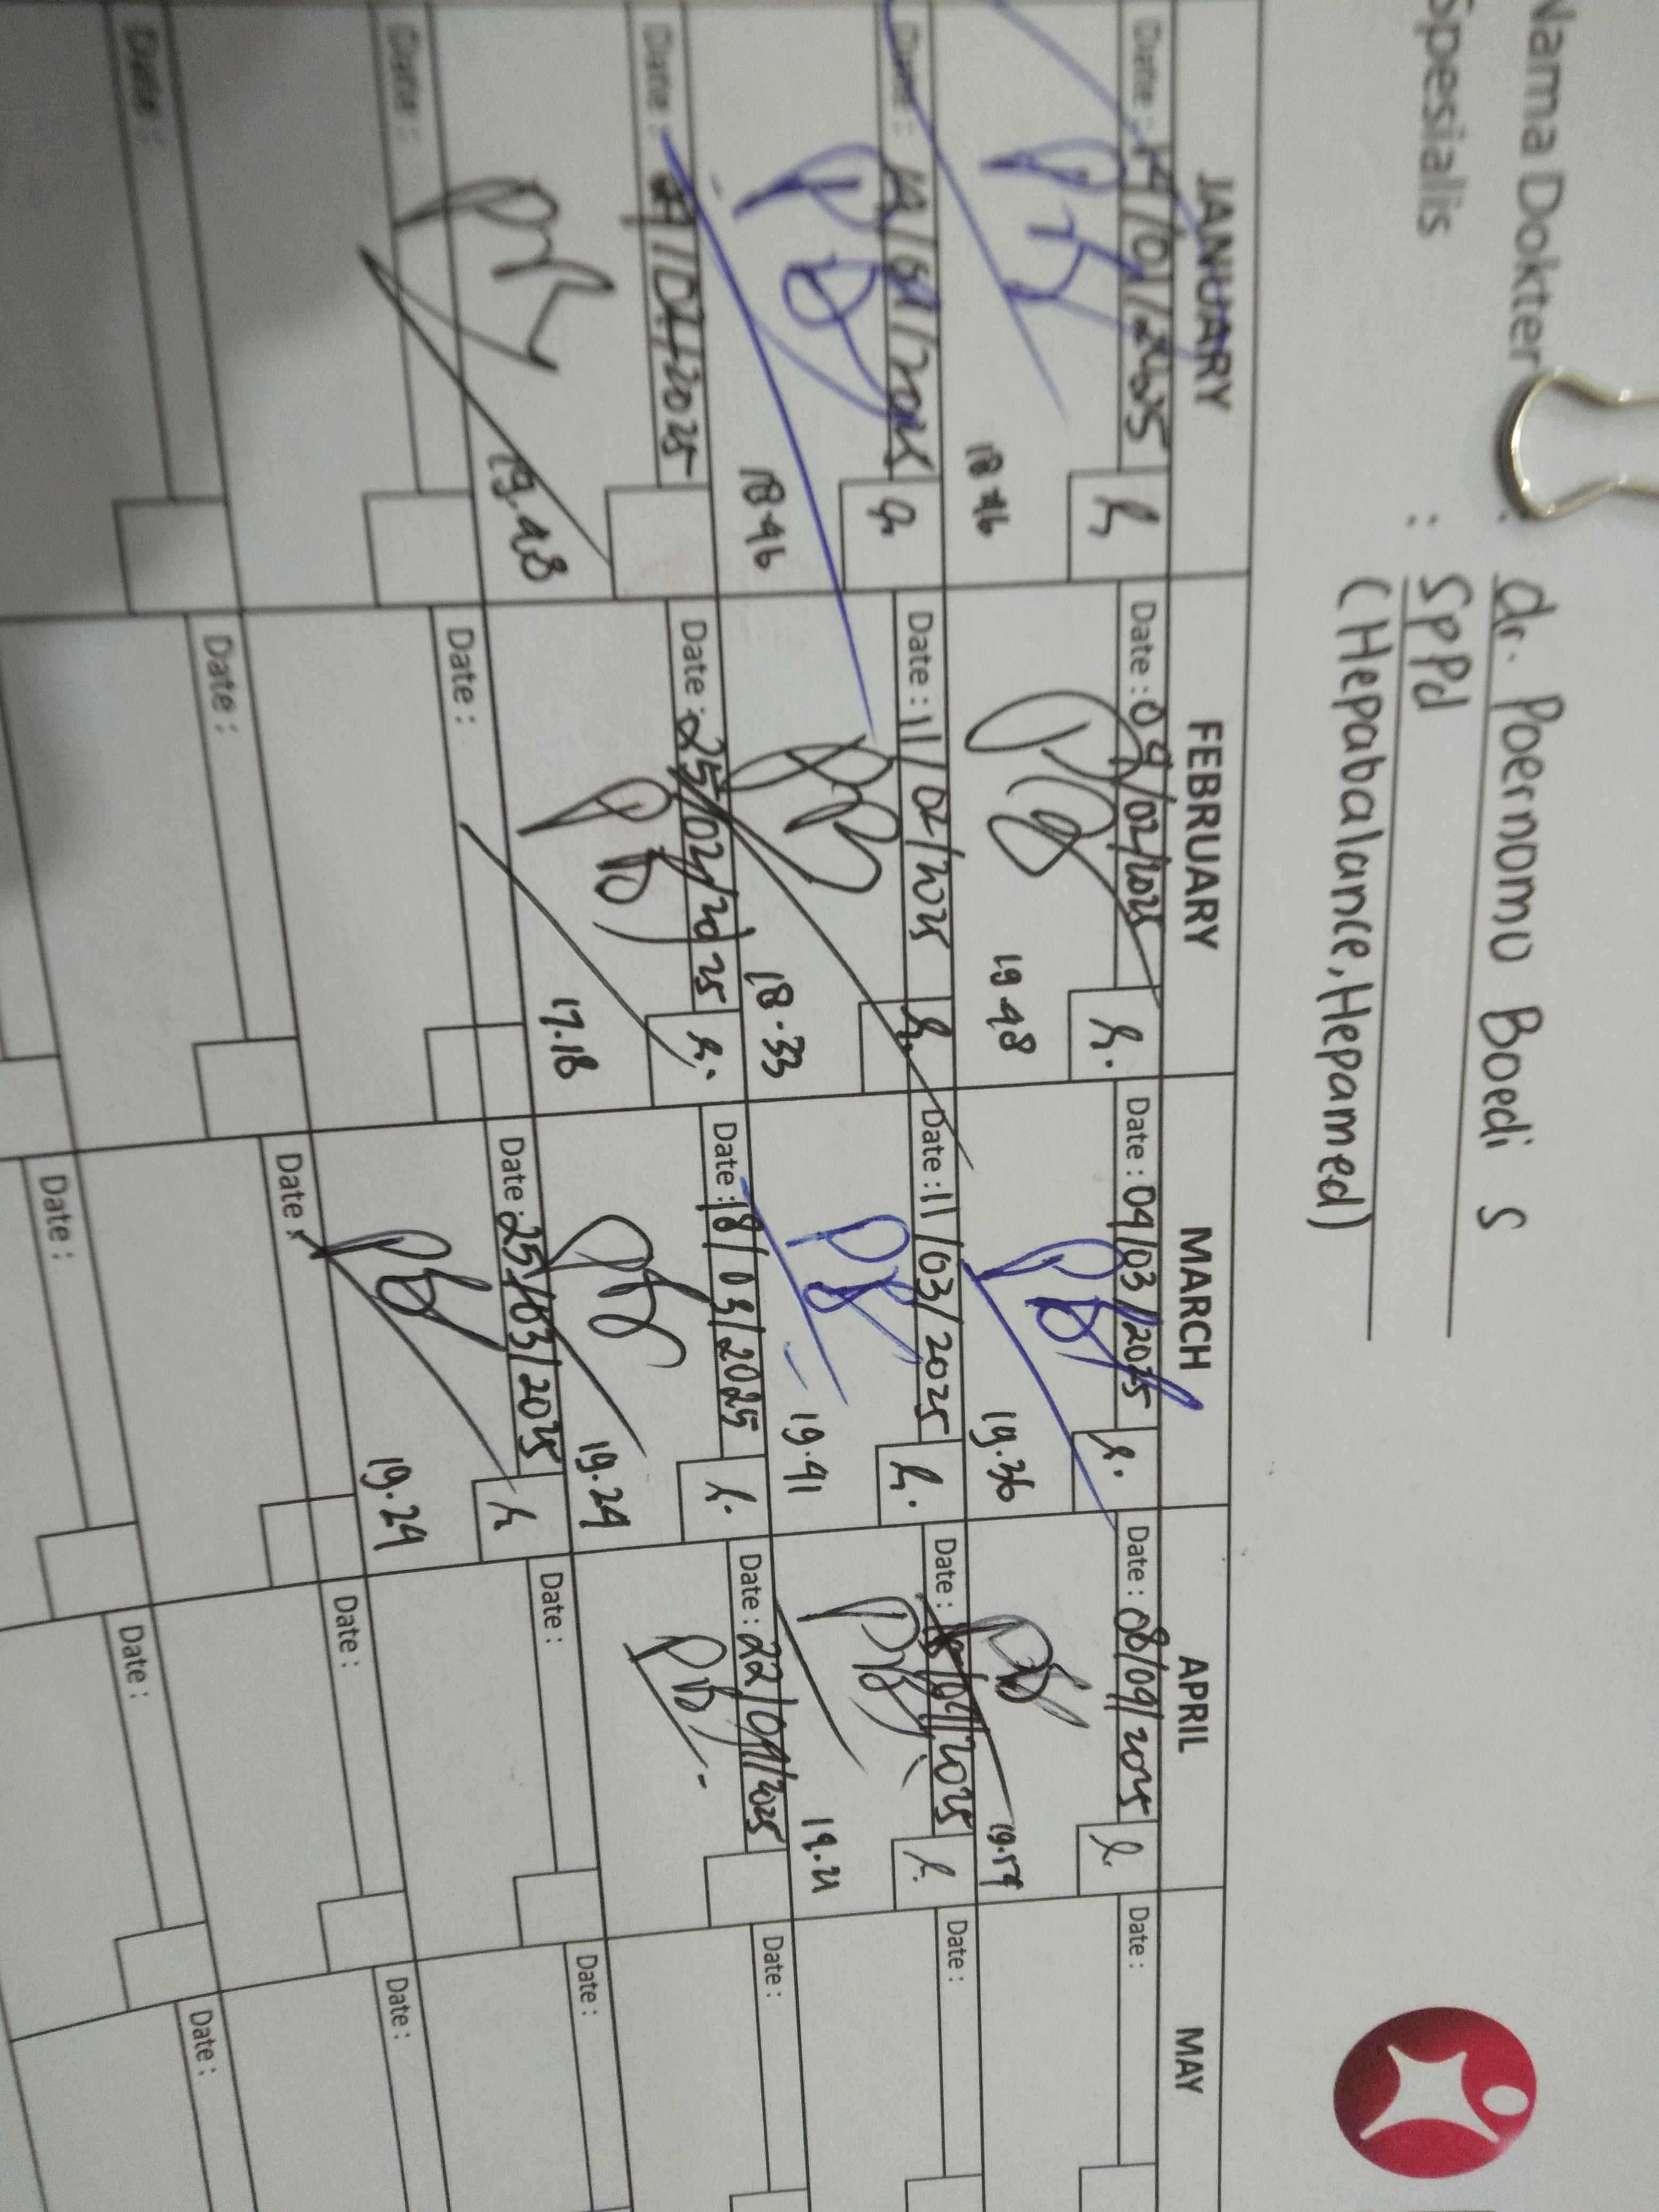 Nama Dokter : dr. Poernomo Boedi S
Spesialis : SpPd
(Hepabalance, Hepamed)
JANUARY FEBRUARY MARCH APRIL MAY
Date : 14/01/2025 Date : 04/02/2025 Date : 04/03/2025 Date : 08/04/2025 Date :
18.46 19.48 19.36
Date : Date : 11/02/2025 Date : 11/03/2025 Date : 15/04/2025 Date :
18.46 18.33 19.41 19.21
Date : Date : 25/02/2025 Date : 18/03/2025 Date : 22/04/2025 Date :
19.48 17.18 19.24
Date : Date : Date : 25/03/2025 Date : Date :
19.24
Date : Date : Date : Date : Date :
Date : Date : Date :